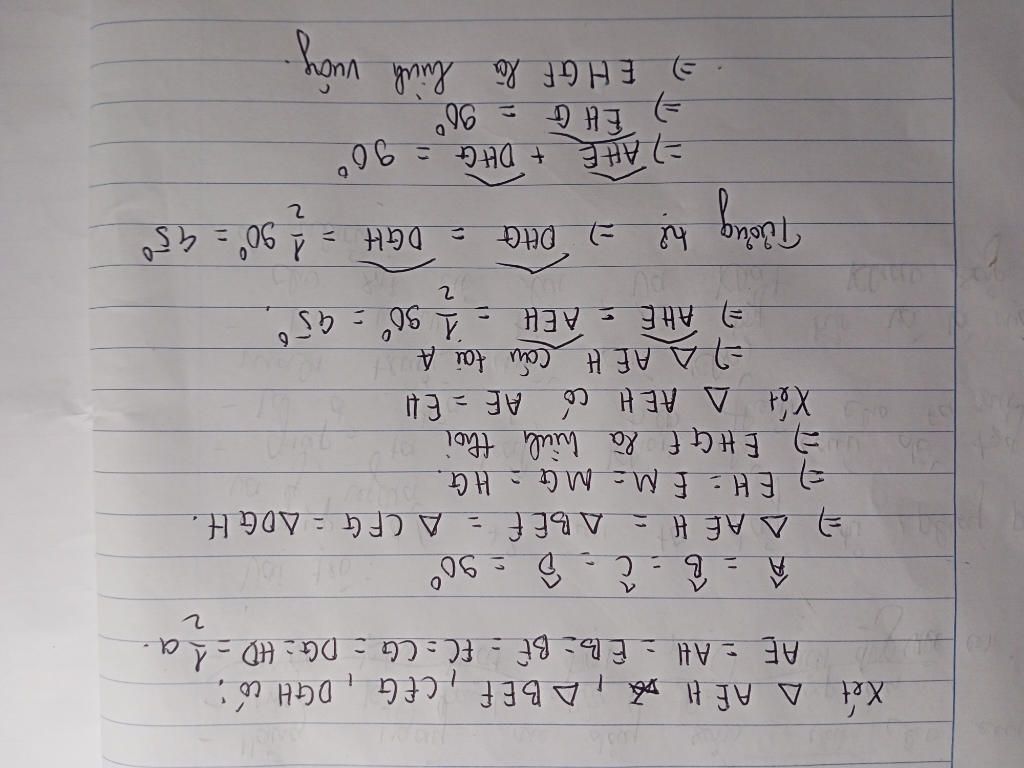 Xét △ AEH, △ BEF, CFG, DGH có:
AE = AH = EB = BF = FC = CG = DG = HD = 1/2 a.
Â = B̂ = Ĉ = D̂ = 90°
=> △ AEH = △ BEF = △ CFG = △DGH.
=> EH = EM = MG = HG.
=> EHGF là hình thoi
Xét △ AEH có AE = EH
=> △ AEH cân tại A
=> AHE = AEH = 1/2 90° = 45°.
Tương tự. => DHG = DGH = 1/2 90° = 45°
=> AHE + DHG = 90°
=> EHG = 90°
=> EHGF là hình vuông.